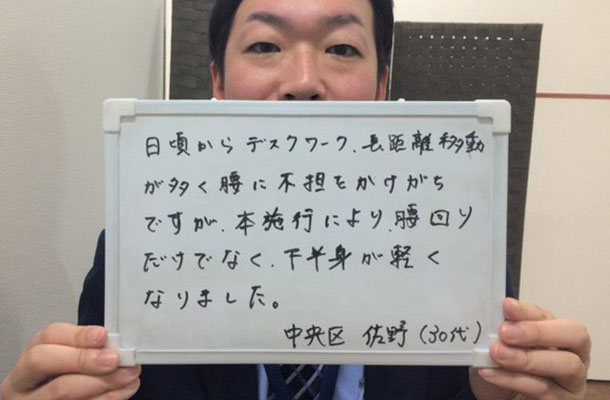 日頃からデスクワーク、長距離移動
が多く腰に不担をかけがち
ですが、本施行により、腰回り
だけでなく、下半身が軽く
なりました。
中央区 佐野(30代)